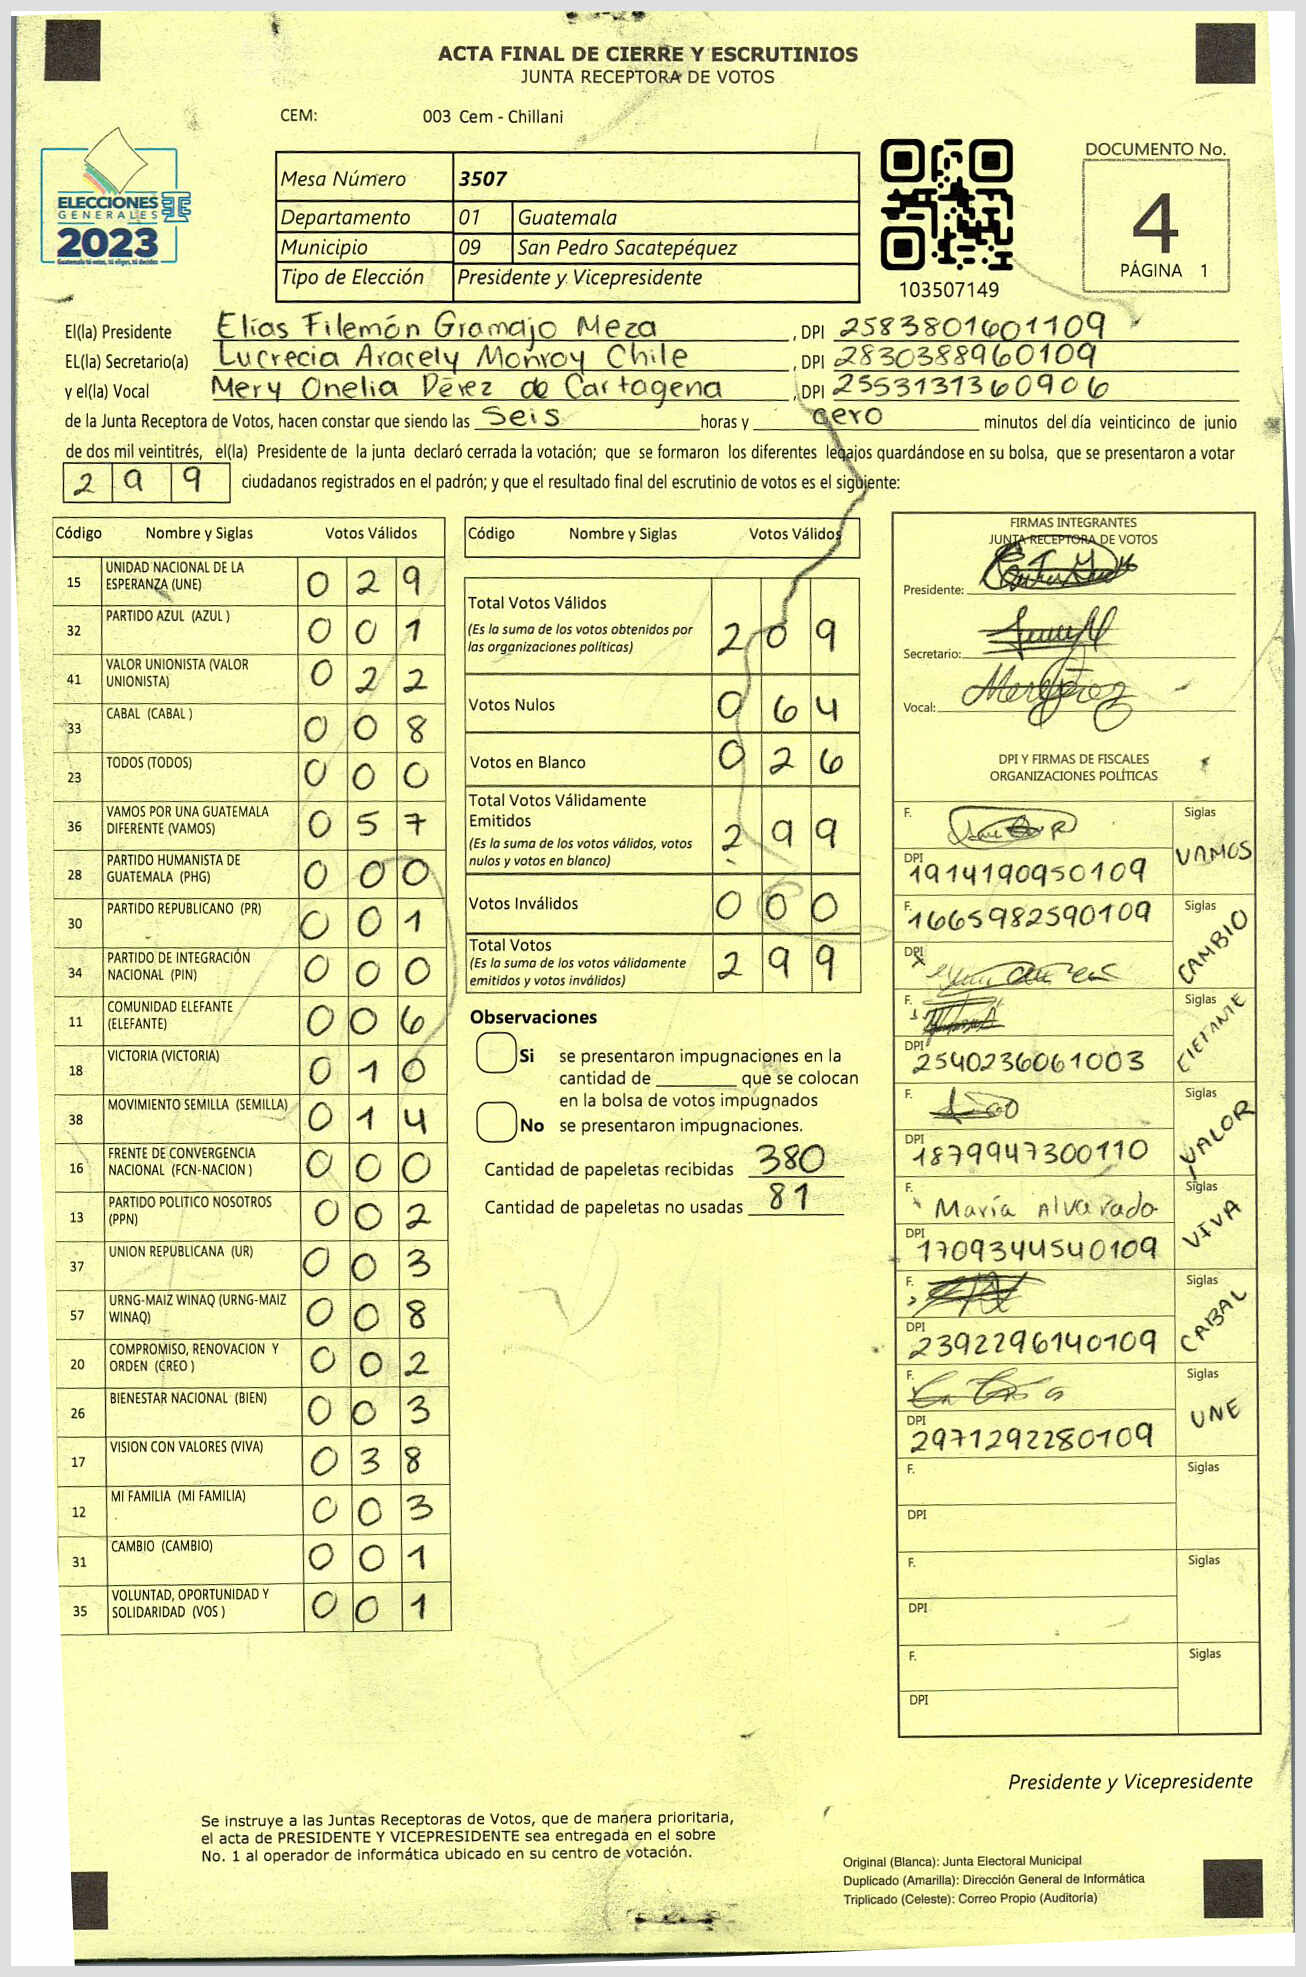 ACTA FINAL DE CIERRE Y ESCRUTINIOS
JUNTA RECEPTORA DE VOTOS
CEM: 003 Cem - Chillani
ELECCIONES
GENERALES
2023
Guatemala tú votas, tú eliges, tú decides
Mesa Número 3507
Departamento 01 Guatemala
Municipio 09 San Pedro Sacatepéquez
Tipo de Elección Presidente y Vicepresidente
103507149
DOCUMENTO No.
4
PÁGINA 1
El(la) Presidente Elías Filemón Gramajo Meza , DPI 2583801601109
EL(la) Secretario(a) Lucrecia Aracely Monroy Chile , DPI 2830388960109
y el(la) Vocal Mery Onelia Pérez de Cartagena , DPI 2553131360906
de la Junta Receptora de Votos, hacen constar que siendo las Seis horas y cero minutos del día veinticinco de junio
de dos mil veintitrés, el(la) Presidente de la junta declaró cerrada la votación; que se formaron los diferentes legajos guardándose en su bolsa, que se presentaron a votar
2 9 9 ciudadanos registrados en el padrón; y que el resultado final del escrutinio de votos es el siguiente:
Código Nombre y Siglas Votos Válidos
15 UNIDAD NACIONAL DE LA ESPERANZA (UNE) 0 2 9
32 PARTIDO AZUL (AZUL ) 0 0 1
41 VALOR UNIONISTA (VALOR UNIONISTA) 0 2 2
33 CABAL (CABAL ) 0 0 8
23 TODOS (TODOS) 0 0 0
36 VAMOS POR UNA GUATEMALA DIFERENTE (VAMOS) 0 5 7
28 PARTIDO HUMANISTA DE GUATEMALA (PHG) 0 0 0
30 PARTIDO REPUBLICANO (PR) 0 0 1
34 PARTIDO DE INTEGRACIÓN NACIONAL (PIN) 0 0 0
11 COMUNIDAD ELEFANTE (ELEFANTE) 0 0 6
18 VICTORIA (VICTORIA) 0 1 0
38 MOVIMIENTO SEMILLA (SEMILLA) 0 1 4
16 FRENTE DE CONVERGENCIA NACIONAL (FCN-NACION ) 0 0 0
13 PARTIDO POLITICO NOSOTROS (PPN) 0 0 2
37 UNION REPUBLICANA (UR) 0 0 3
57 URNG-MAIZ WINAQ (URNG-MAIZ WINAQ) 0 0 8
20 COMPROMISO, RENOVACION Y ORDEN (CREO ) 0 0 2
26 BIENESTAR NACIONAL (BIEN) 0 0 3
17 VISION CON VALORES (VIVA) 0 3 8
12 MI FAMILIA (MI FAMILIA) 0 0 3
31 CAMBIO (CAMBIO) 0 0 1
35 VOLUNTAD, OPORTUNIDAD Y SOLIDARIDAD (VOS ) 0 0 1
Código Nombre y Siglas Votos Válidos
Total Votos Válidos 2 0 9
(Es la suma de los votos obtenidos por
las organizaciones políticas)
Votos Nulos 0 6 4
Votos en Blanco 0 2 6
Total Votos Válidamente
Emitidos 2 9 9
(Es la suma de los votos válidos, votos
nulos y votos en blanco)
Votos Inválidos 0 0 0
Total Votos 2 9 9
(Es la suma de los votos válidamente
emitidos y votos inválidos)
Observaciones
Si se presentaron impugnaciones en la
cantidad de ________ que se colocan
en la bolsa de votos impugnados
No se presentaron impugnaciones.
Cantidad de papeletas recibidas 380
Cantidad de papeletas no usadas 81
FIRMAS INTEGRANTES
JUNTA RECEPTORA DE VOTOS
Presidente:
Secretario:
Vocal:
DPI Y FIRMAS DE FISCALES
ORGANIZACIONES POLÍTICAS
F. Siglas VAMOS
DPI 1914190950109
F. 1665982590109 Siglas CAMBIO
DPI
F. Siglas ElEFANTE
DPI 2540236061003
F. Siglas VALOR
DPI 1879947300110
F. María Alvarado Siglas VIVA
DPI 1709344540109
F. Siglas CABAL
DPI 2392296140109
F. Siglas UNE
DPI 2971292280109
F. Siglas
DPI
F. Siglas
DPI
F. Siglas
DPI
Presidente y Vicepresidente
Se instruye a las Juntas Receptoras de Votos, que de manera prioritaria,
el acta de PRESIDENTE Y VICEPRESIDENTE sea entregada en el sobre
No. 1 al operador de informática ubicado en su centro de votación.
Original (Blanca): Junta Electoral Municipal
Duplicado (Amarilla): Dirección General de Informática
Triplicado (Celeste): Correo Propio (Auditoría)